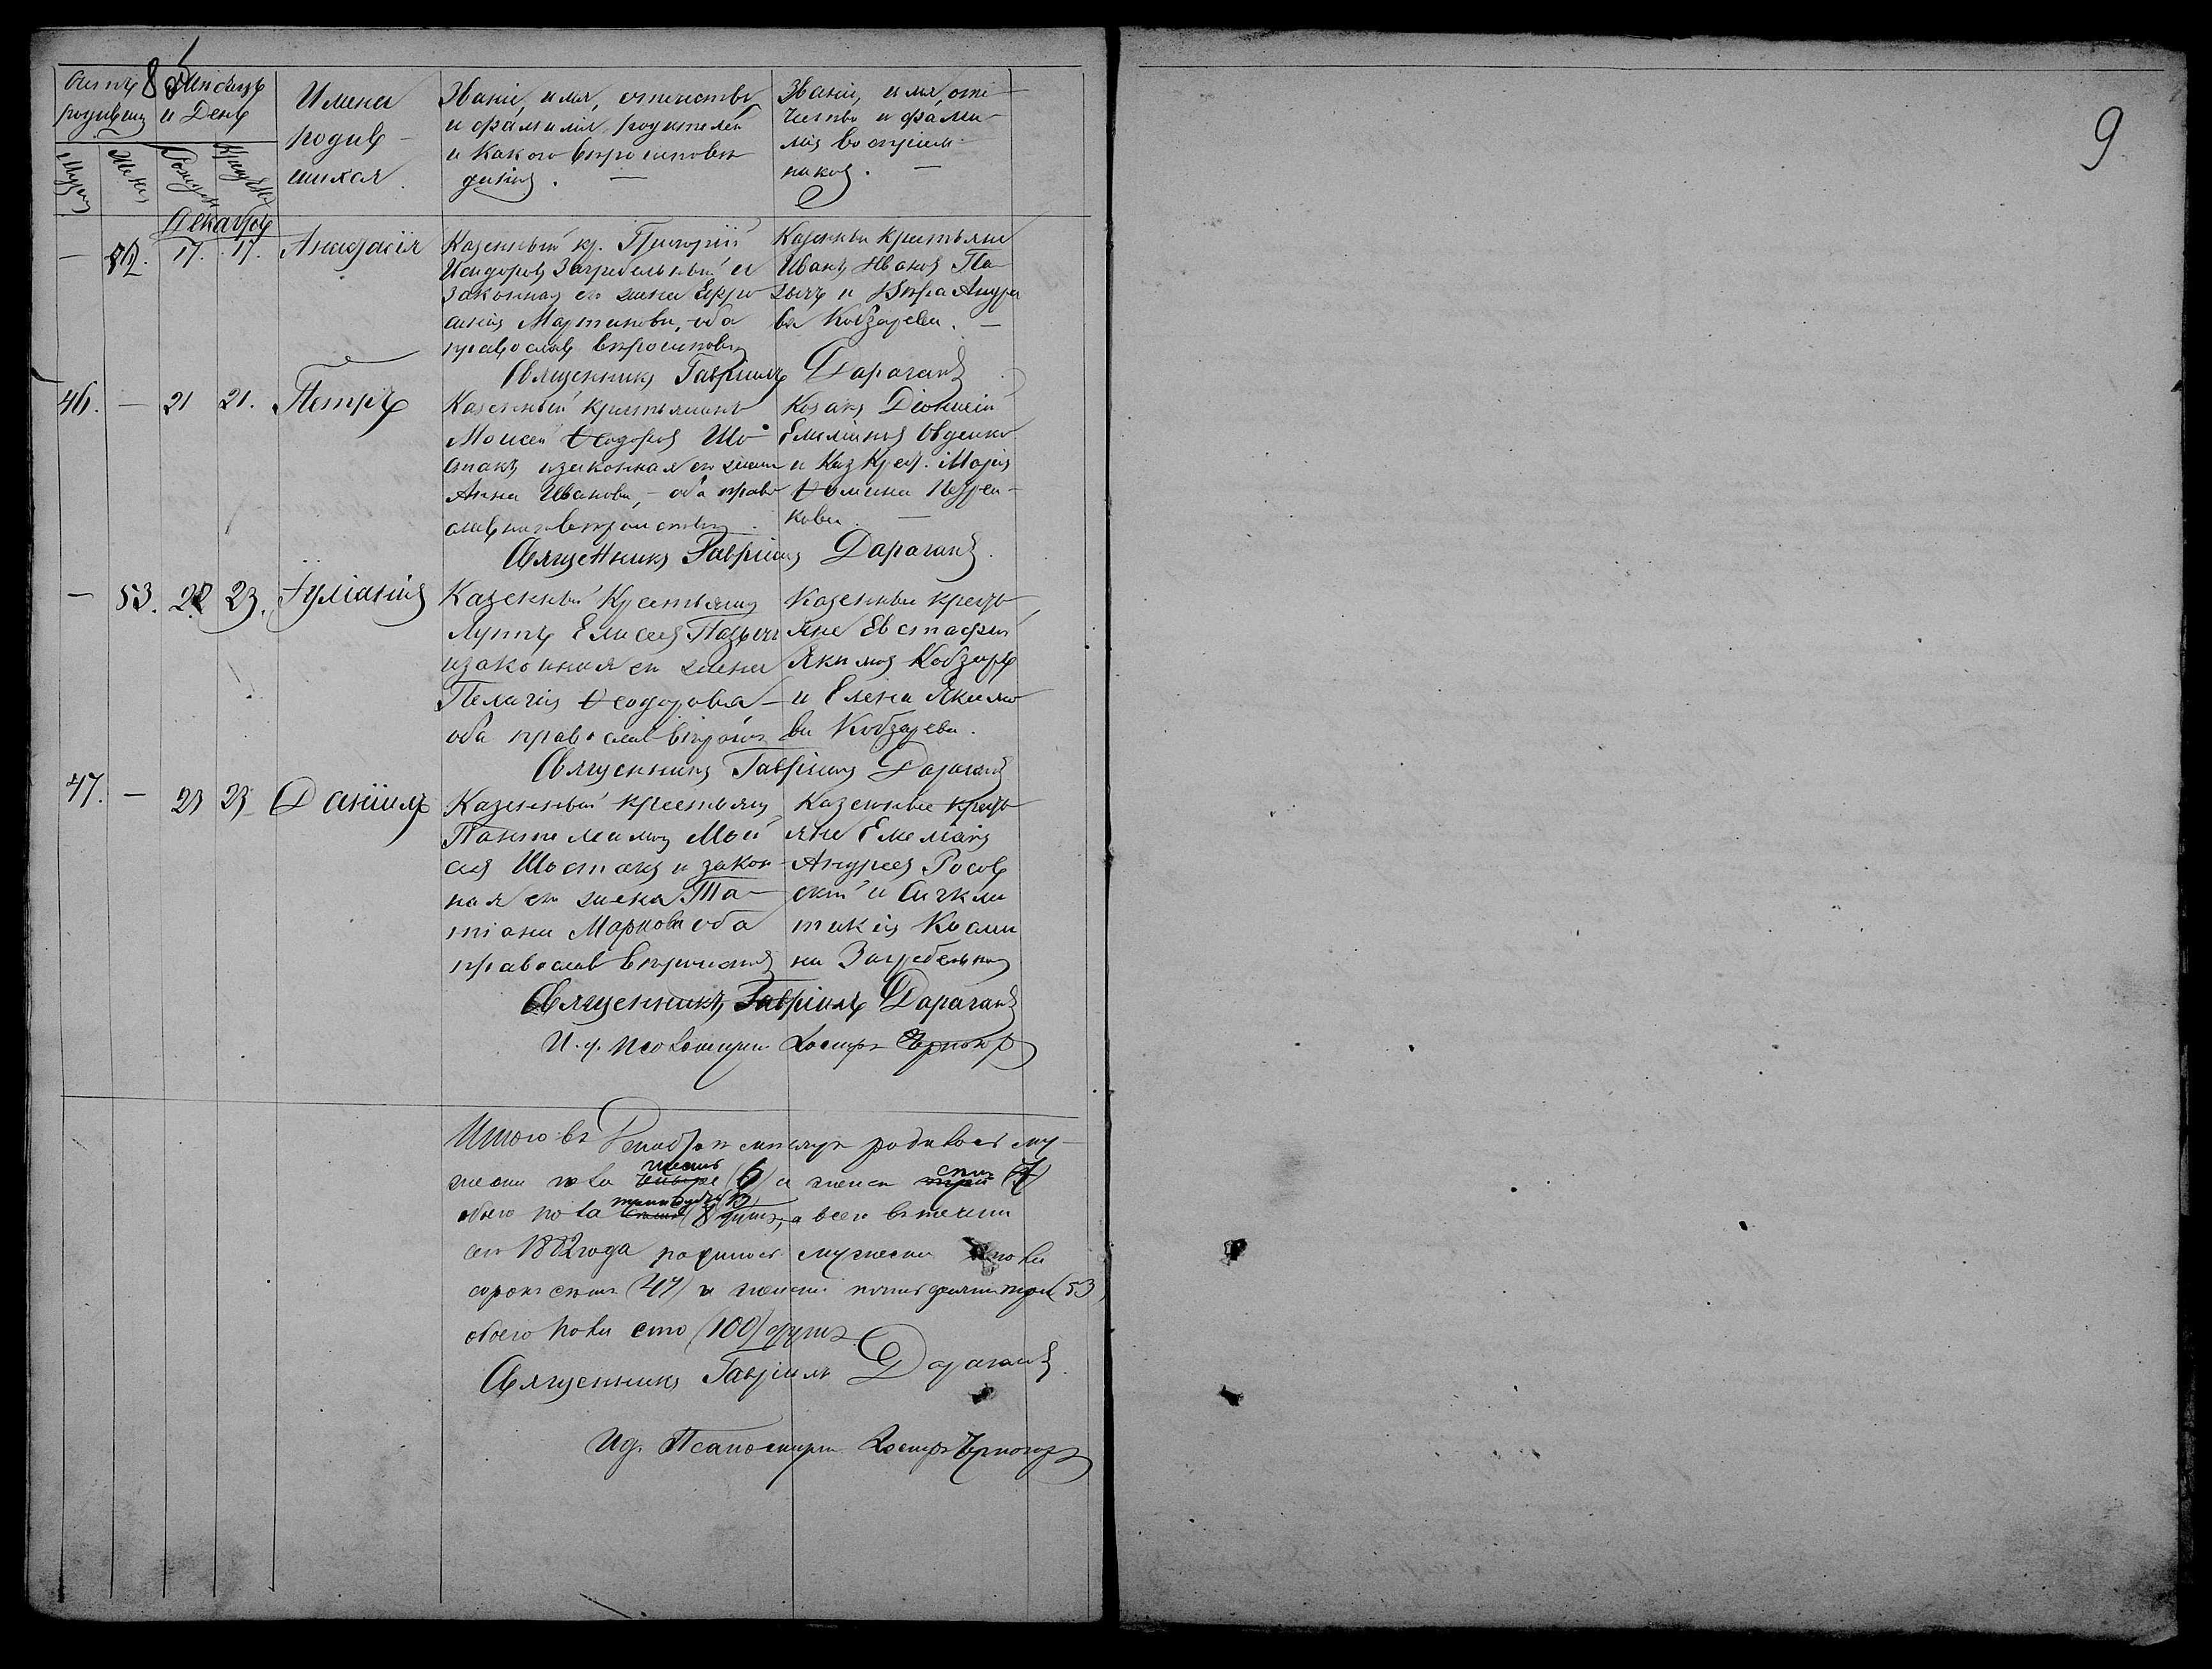 Счетъ родившихся
Мѣсяцъ и День
Мужеск
Женск
Рожденія
Крещенія
Имена родив-
шихся.
Званіе, имя, отчество,
и фамилія родителей
и какого вѣроисповѣ-
данія. —
Званіе, имя, отче-
ство и фами-
лія воспріем-
никовъ. —
9
Декабрь
— 52. 17. 17. Анастасія
Казенный кр. Григорій
Исидоровъ Загребельный и
законная его жена Евфро
синія Мартинова, оба
православ вѣроисповѣд
Казенные крестьяне
Иванъ Ивановъ Па
зычъ и Вѣра Андрее
ва Кобзарева. —
Священникъ Гавріилъ Дараганъ
46. — 21 21. Петръ
Казенный крестьянинъ
Моисей Ѳеодоровъ Шо-
стакъ и законная его жена
Анна Иванова, — оба право
славнаго вѣроисповѣд.
Козакъ Діонисій
Емиліановъ Овдіенко
и Каз Крест. Марія
Ѳомина Петрен-
кова. —
Священникъ Гавріилъ Дараганъ.
— 53. 22 23. Іуліанія
Казенный Крестьянинъ
Луппъ Елисеевъ Пазычъ
и законная его жена
Пелагія Ѳеодорова —
оба православ вѣроисп
Казенные кресть
яне Евстафій
Якимовъ Кобзарь
и Елена Якимо
ва Кобзарева.
Священникъ Гавріилъ Дараганъ
47. — 23 23 Даніилъ
Казенный крестьянинъ
Пантелеимонъ Мои
сеевъ Шостакъ и закон
ная его жена Та-
тіана Маркова оба
православ вѣроисповѣд
Казенные кресть
яне Емеліанъ
Андреевъ Росов
скій и Сигкли
тикія Косми
на Загребельная
Священникъ Гавріилъ Дараганъ
И. д. псаломщика
Итого въ Декабрѣ мѣсяцѣ родилось му-
жеска пола шесть (6) и женска семь (7)
обоего пола тринадцать (13) душъ, а всего въ теченіи
сего 1882 года родилось мужеска пола
сорокъ семь (47) и женска пятьдесятъ три (53)
обоего пола сто (100) душъ
Священникъ Гавріилъ Дараганъ.
И д. Псаломщика